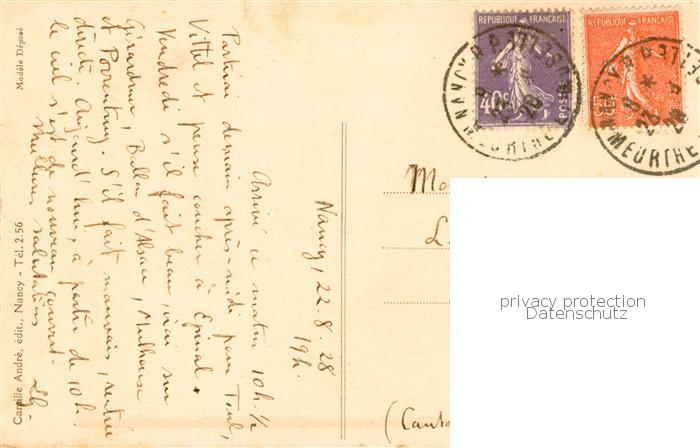 Nancy, 22.8.28
19h.
Arrivé ce matin 10h 1/2
Partirai demain après-midi pour Toul,
Vittel et pense coucher à Epinal.
Vendredi s'il fait beau, irai sur
Gérardmer, Ballon d'Alsace, Mulhouse
et Porrentruy. S'il fait mauvais, rentrée
directe. Aujourd'hui, à partir de 10h.
le ciel s'est de nouveau couvert.
Meilleures salutations
Modèle Déposé
Camille André, édit., Nancy - Tél. 2.56
REPUBLIQUE FRANÇAISE
40c
POSTES
REPUBLIQUE FRANÇAISE
NANCY
MEURTHE
28
MEURTHE
28
Mo
L
(Canto
privacy protection
Datenschutz